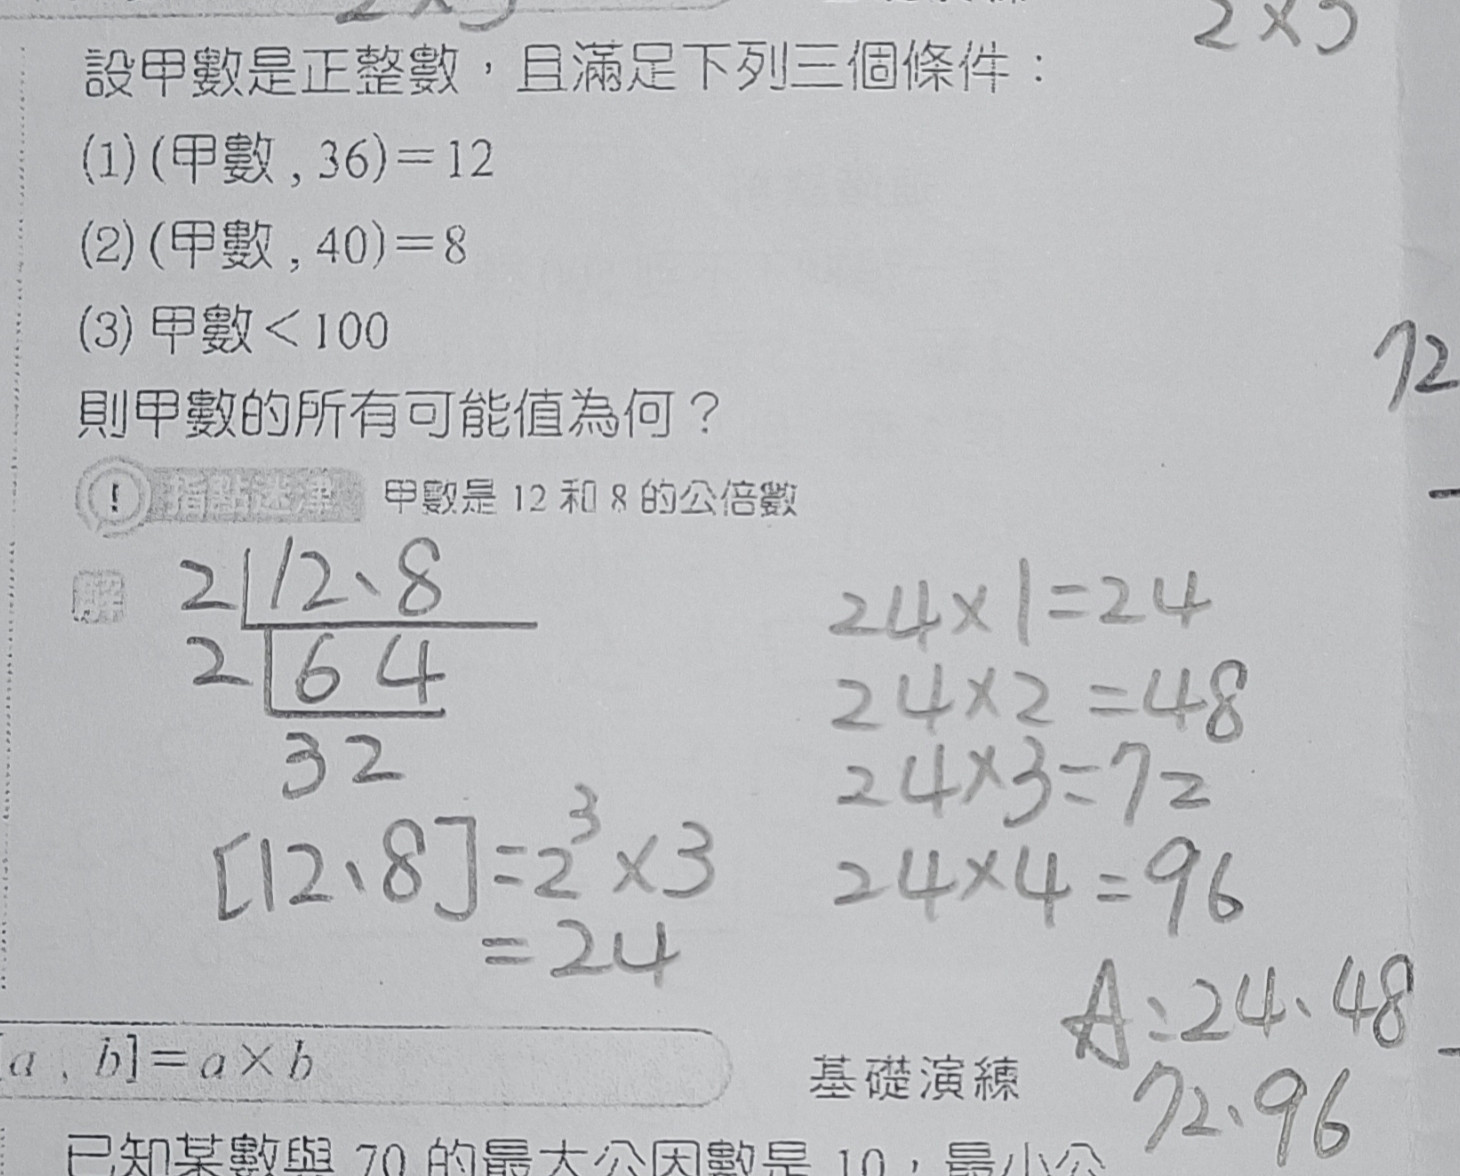 2×5
設甲數是正整數，且滿足下列三個條件：
(1) (甲數 , 36)＝12
(2) (甲數 , 40)＝8
(3) 甲數＜100
72
則甲數的所有可能值為何？
! 指點迷津 甲數是 12 和 8 的公倍數
解
2 12、8
2 6 4
3 2
[12、8]=2³×3
=24
24×1=24
24×2=48
24×3=72
24×4=96
A:24、48
72、96
a , b]＝a×b
基礎演練
已知某數與 70 的最大公因數是 10，最小公